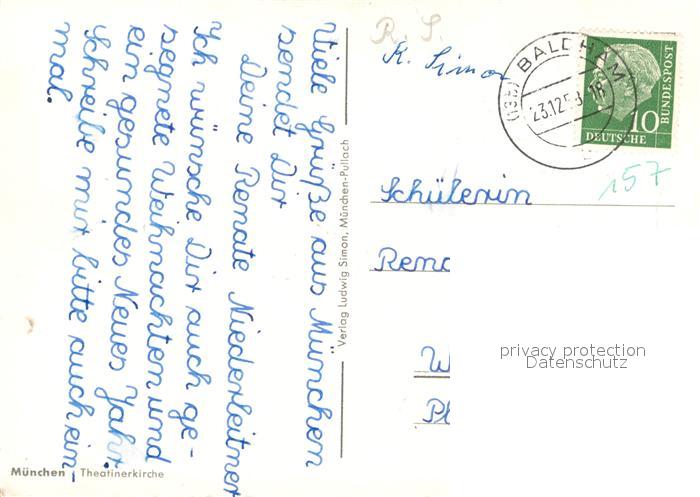 Viele Grüße aus München
sendet Dir
Deine Renate Niederleitner
Ich wünsche Dir auch ge-
segnete Weihnachten und
ein gesundes Neues Jahr.
Schreibe mir bitte auch ein-
mal.
München - Theatinerkirche
Verlag Ludwig Simon, München-Pullach
R. S.
R. Simon
(13b) BALDHAM
23.12.58.-18
10
DEUTSCHE
BUNDESPOST
157
Schülerin
Rena
W
Pl
privacy protection
Datenschutz